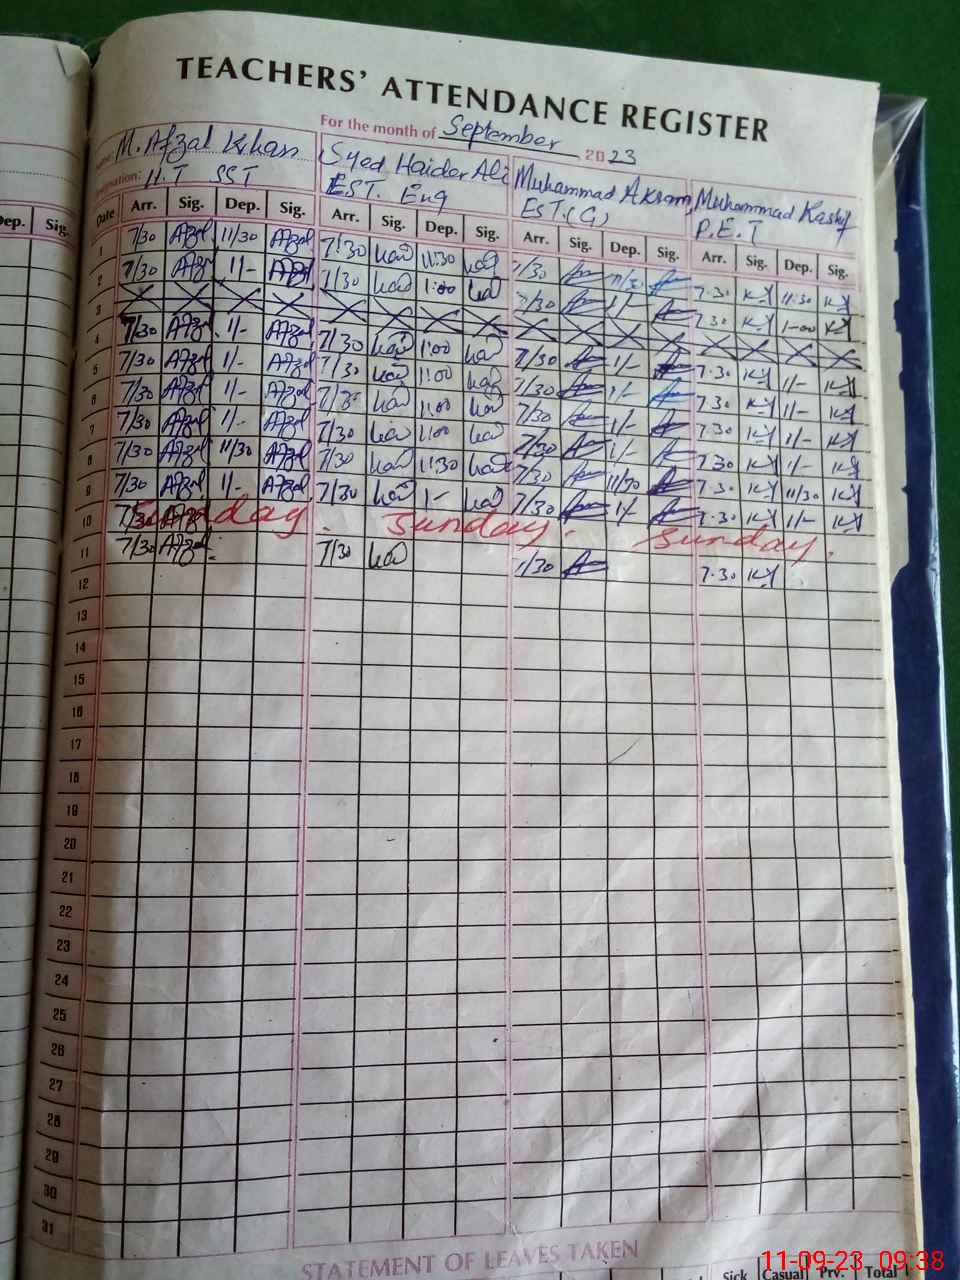 TEACHERS' ATTENDANCE REGISTER
For the month of September 2023
M. Afzal Khan Syed Haider Ali Muhammad Akram Muhammad Kashif
H.T SST EST. Eng EST.(G) P.E.T
Dep. Sig. Date Arr. Sig. Dep. Sig. Arr. Sig. Dep. Sig. Arr. Sig. Dep. Sig. Arr. Sig. Dep. Sig.
1 7/30 Afzal 11/30 Afzal 7:30 11:30 7/30 11/30 7.30 11:30
2 7/30 Afzal 1/- Afzal 7/30 1:00 7/30 1/- 7.30 1-00
3
4 7/30 Afzal 1/- Afzal 7/30 1:00 7/30 1/- 7.30 1/-
5 7/30 Afzal 1/- Afzal 7/30 1:00 7/30 1/- 7.30 1/-
6 7/30 Afzal 1/- Afzal 7/3- 1:00 7/30 1/- 7.30 1/-
7 7/30 Afzal 1/- Afzal 7/30 1:00 7/30 1/- 7.30 1/-
8 7/30 Afzal 11/30 Afzal 7/30 11:30 7/30 11/30 7.30 11/30
9 7/30 Afzal 1/- Afzal 7/30 1- 7/30 1/- 7.30 1/-
10 Sunday. Sunday. Sunday.
11 7/30 Afzal 7/30 7/30 7.30
12
13
14
15
16
17
18
19
20
21
22
23
24
25
26
27
28
29
30
31
STATEMENT OF LEAVES TAKEN
Sick Casual Prv. Total
11-09-23 09:38